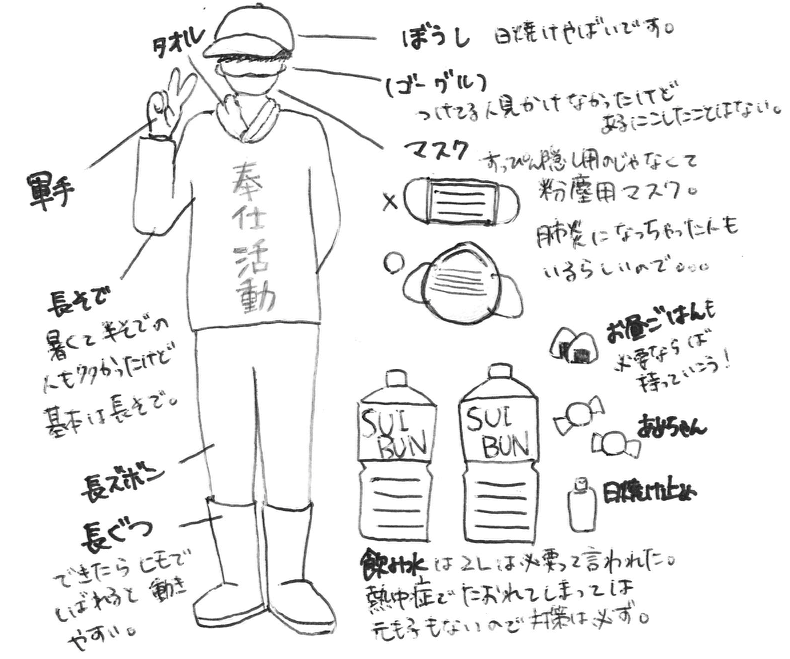 タオル
ぼうし 日焼けやばいです。
(ゴーグル)
つけてる人見かけなかったけど
あるにこしたことはない。
マスク すっぴん隠し用のじゃなくて
粉塵用マスク。
肺炎になっちゃった人も
いるらしいので。。。
軍手
奉仕活動
長そで
暑くて半そでの
人も多かったけど
基本は長そで。
お昼ごはんも
必要ならば
持っていこう!
あめちゃん
日焼け止め
SUI
BUN
SUI
BUN
長ズボン
長ぐつ
できたらヒモで
しばれると動き
やすい。
飲み水は2Lは必要って言われた。
熱中症でたおれてしまっては
元も子もないので対策は必ず。